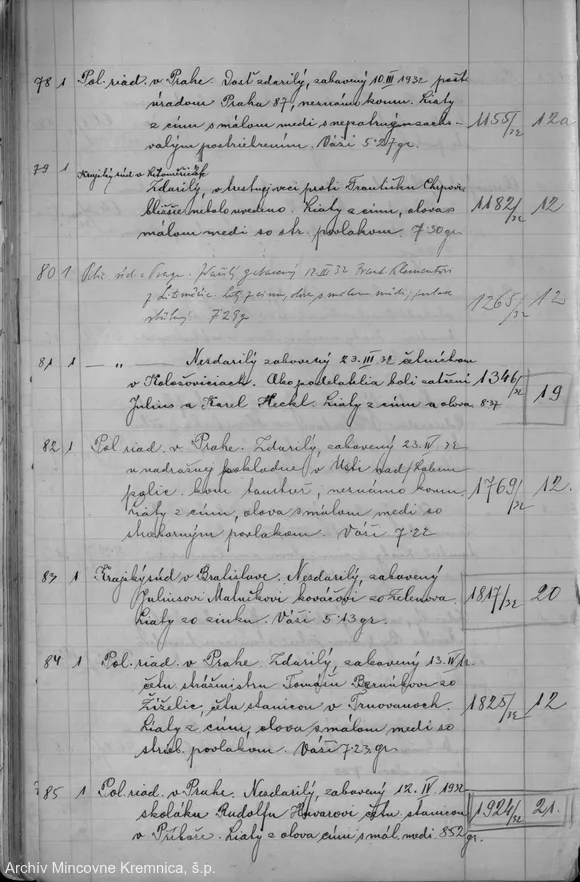 78 1 Pol. riad. v Prahe. Dosť zdarilý, zabavený 10 III 1932 pošt.
úradom Praha 87, neznámo komu. Liaty
z cínu s málom medi s nepatrným zacho-
valým postriebrením. Váži 5·27 gr. 1155/32 12a
79 1 Krajský súd v Litoměřicích
Zdarilý, v trestnej veci proti Františku
bližšie nebolo uvedeno. Liaty z cínu, olova s
málom medi so str. povlakom. 7·30 gr 1182/32 12
80 1 Pol. riad. v Prahe. 32 Frant. Klementovi
z Litoměřic. Liaty z cínu, olova s málom medi, povlak
7·29 gr 1265/32 12
81 1 — „ — Nezdarilý zabavený 23. III 32 četníctvom
v Holešoviciach. Ako padelatelia boli zatčení
Julius a Karel Heckl. Liaty z cínu a olova 8·37 1346/32 19
82 1 Pol. riad. v Prahe. Zdarilý, zabavený 23. IV 32
u nádražnej pokladne v Ústí nad/Labem
polic. kom. tamtiež, neznámo komu,
liaty z cínu, olova s málom medi so
strieborným povlakom. Váži 7·22 1769/32 12.
83 1 Krajský súd v Bratislave. Nezdarilý, zabavený
Juliusovi Matučkovi kováčovi zo Zelenova.
Liaty zo zinku. Váži 5·13 gr. 1817/32 20
84 1 Pol. riad. v Prahe. Zdarilý, zabavený 13. IV 32
četn. strážmistru Tomášu Berníkovi zo
Žíželic, četn. stanicou v Trnovanoch.
Liaty z cínu, olova s málom medi so
strieb. povlakom. Váži 7·23 gr 1825/32 12
85 1 Pol. riad. v Prahe. Nezdarilý, zabavený 12. IV. 1932
školáku Rudolfu Havarovi četn. stanicou
v Příboře. Liaty z olova, cínu s mál. medi 8·52 gr. 1924/32 21.
Archív Mincovne Kremnica, š.p.